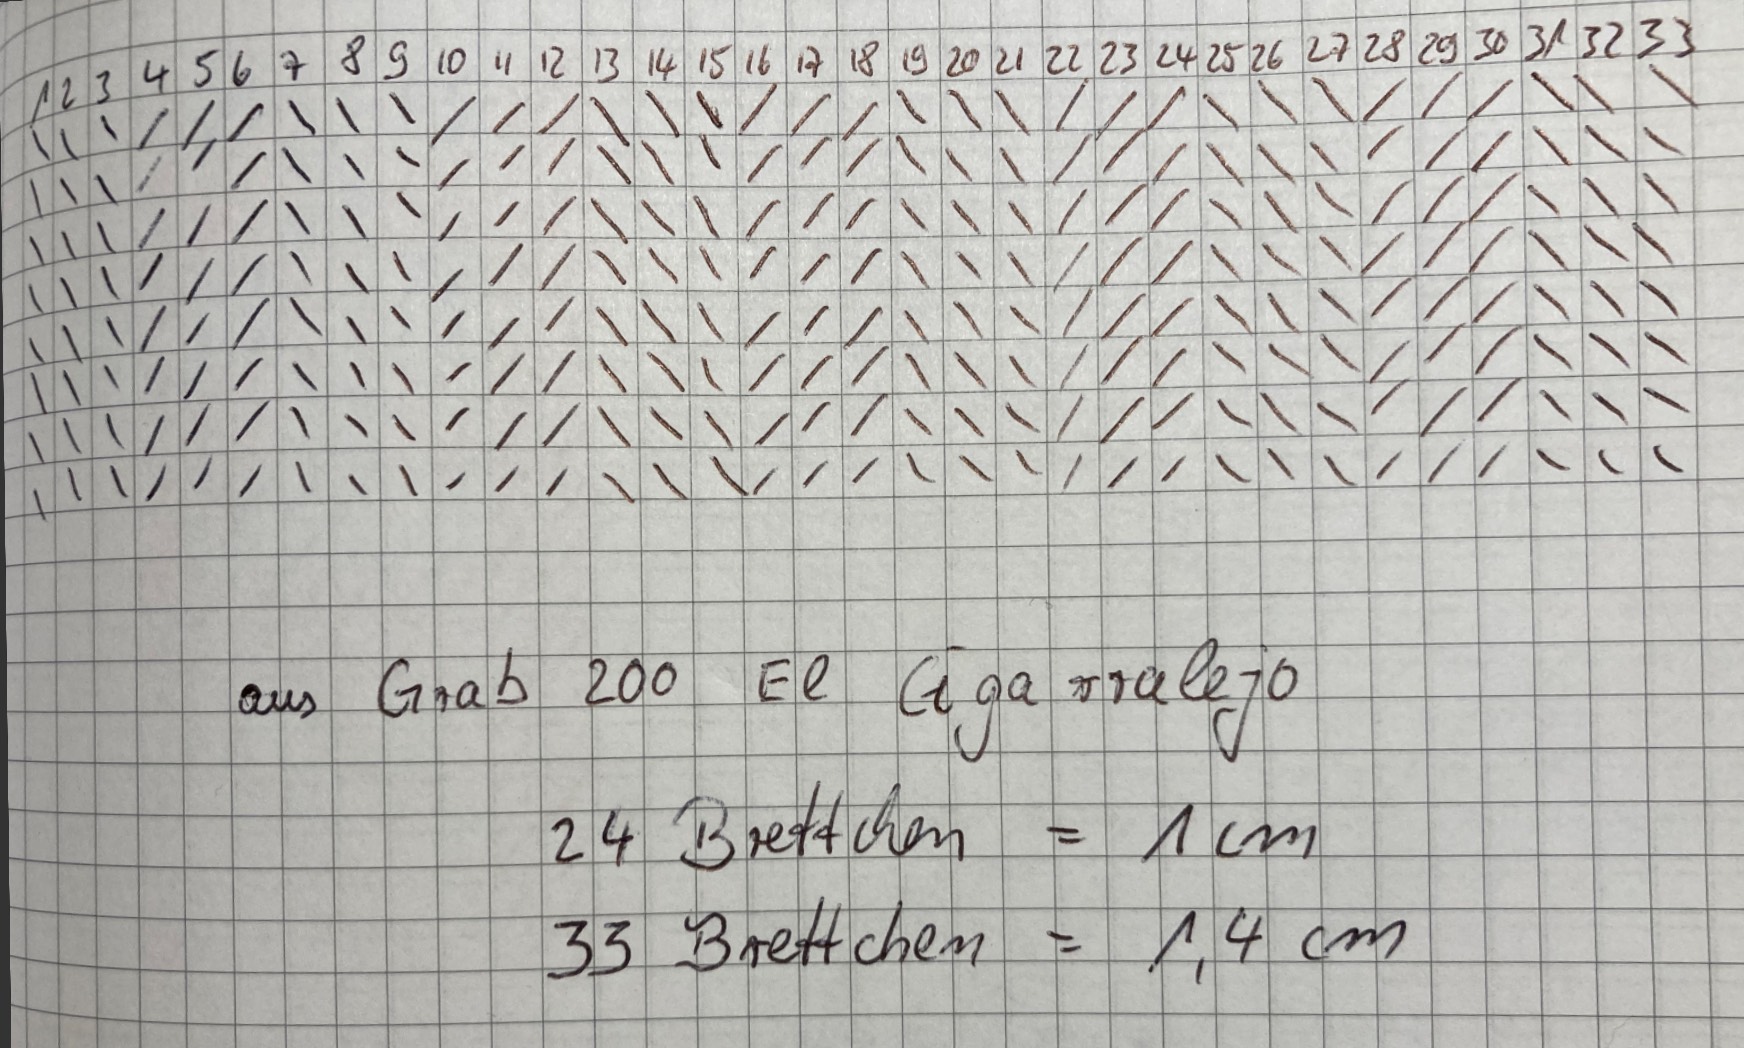 1 2 3 4 5 6 7 8 9 10 11 12 13 14 15 16 17 18 19 20 21 22 23 24 25 26 27 28 29 30 31 32 33
\ \ \ / / / \ \ \ / / / \ \ \ / / / \ \ \ / / / \ \ \ / / / \ \ \
\ \ \ / / / \ \ \ / / / \ \ \ / / / \ \ \ / / / \ \ \ / / / \ \ \
\ \ \ / / / \ \ \ / / / \ \ \ / / / \ \ \ / / / \ \ \ / / / \ \ \
\ \ \ / / / \ \ \ / / / \ \ \ / / / \ \ \ / / / \ \ \ / / / \ \ \
\ \ \ / / / \ \ \ / / / \ \ \ / / / \ \ \ / / / \ \ \ / / / \ \ \
\ \ \ / / / \ \ \ / / / \ \ \ / / / \ \ \ / / / \ \ \ / / / \ \ \
\ \ \ / / / \ \ \ / / / \ \ \ / / / \ \ \ / / / \ \ \ / / / \ \ \
\ \ \ / / / \ \ \ / / / \ \ \ / / / \ \ \ / / / \ \ \ / / / \ \ \
aus Grab 200 El Cigarralejo
24 Brettchen = 1 cm
33 Brettchen = 1,4 cm